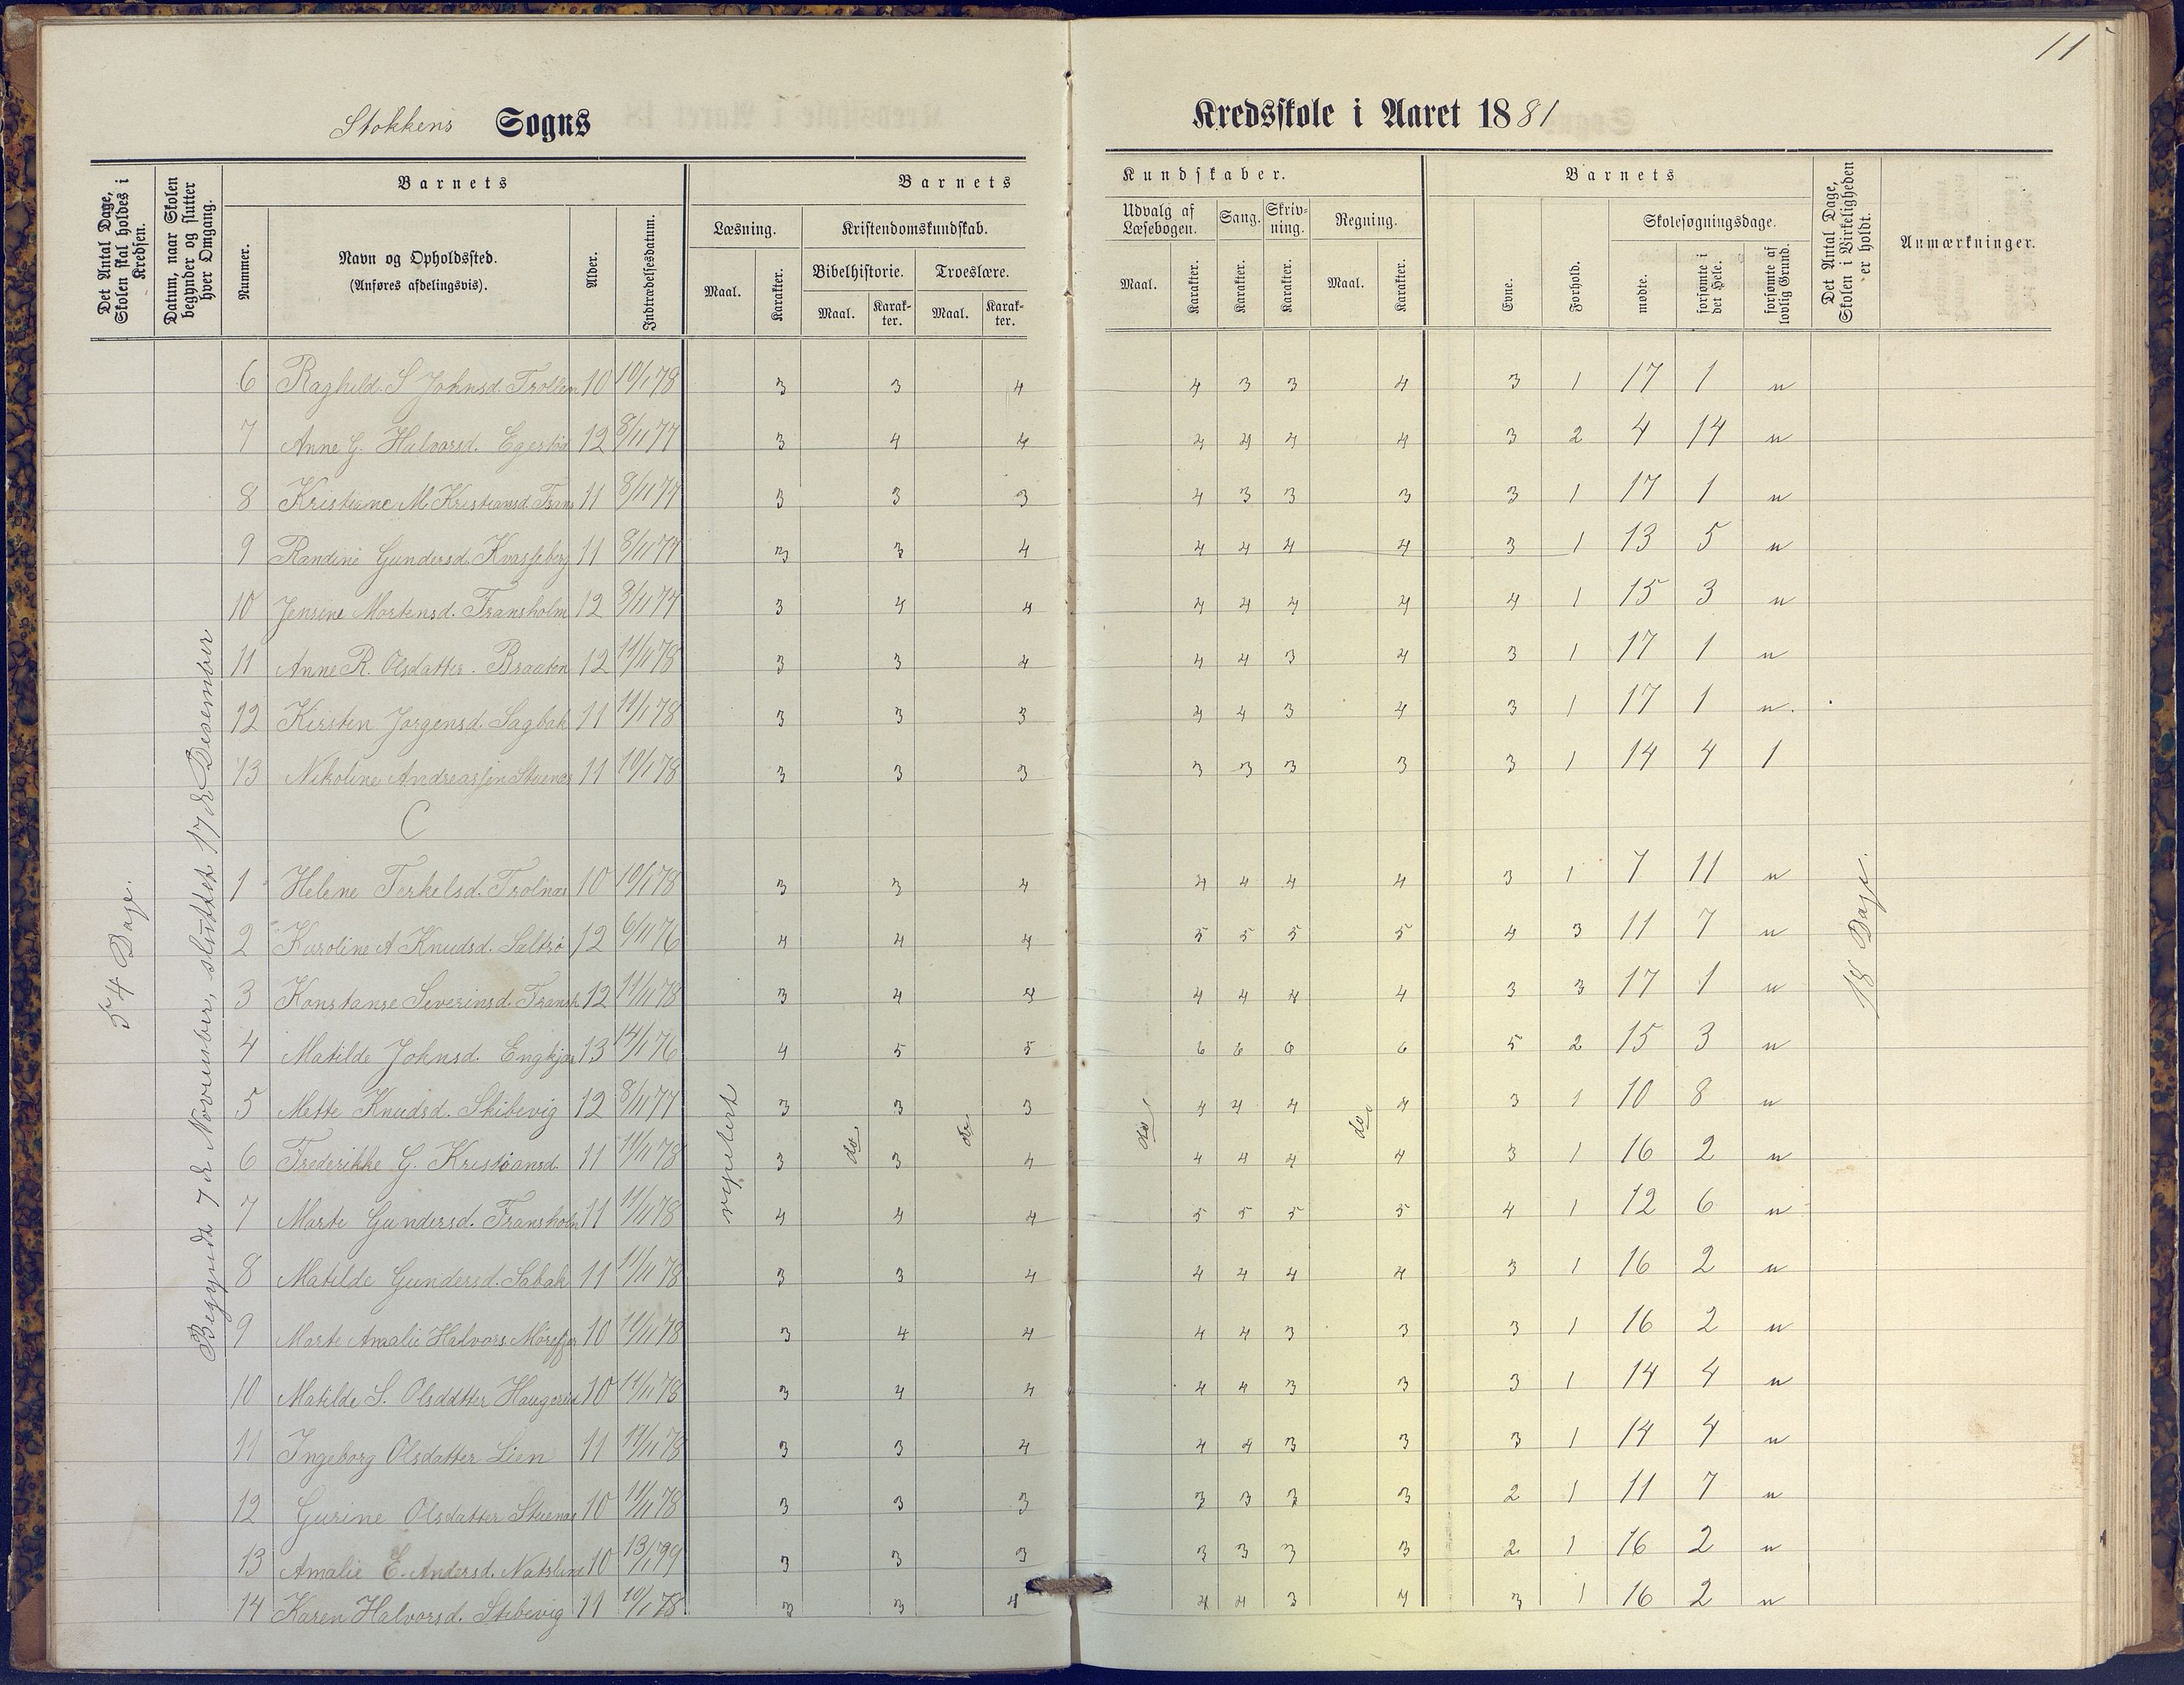 11
Stokkens Sogns
Kredsskole i Aaret 1881
Det Antal Dage, Skolen skal holdes i Kredsen.
Datum, naar Skolen begynder og slutter hver Omgang.
Barnets
Nummer.
Navn og Opholdssted.
(Anføres afdelingsvis).
Alder.
Indtrædelsesdatum.
Barnets Kundskaber.
Læsning. Kristendomskundskab. Udvalg af Læsebogen. Sang. Skrivning. Regning.
Bibelhistorie. Troeslære.
Maal. Karakter. Maal. Karakter. Maal. Karakter. Maal. Karakter. Karakter. Karakter. Maal. Karakter.
Barnets
Evne. Forhold. Skolesøgningsdage.
mødte. forsømte i det Hele. forsømte af lovlig Grund.
Det Antal Dage, Skolen i Virkeligheden er holdt.
Anmærkninger.
54 Dage.
Begyndt 7de November, sluttet 17de Desember
6 Raghild S Johnsd. 10 10/1 78 3 3 4 4 3 3 4 3 1 17 1 "
7 Anne G. Halvorsd. 12 8/11 77 3 4 4 4 4 4 4 3 2 4 14 "
8 Kristiane M. Kristiansd. Frans 11 8/11 77 3 3 3 4 3 3 3 3 1 17 1 "
9 Randine Gundersd. 11 8/11 77 3 3 4 4 4 4 4 3 1 13 5 "
10 Jensine Mortensd. Fransholm 12 8/11 77 3 4 4 4 4 4 4 4 1 15 3 "
11 Anne R. Olsdatter. Braaten 12 11/11 78 3 3 4 4 4 3 4 3 1 17 1 "
12 Kirsten Jørgensd. Sagbak 11 11/1 78 3 3 3 4 4 3 4 3 1 17 1 "
13 Nikoline 11 10/1 78 3 3 3 3 3 3 3 3 1 14 4 1
C
1 Helene Terkelsd. Trolnæs 10 10/1 78 3 3 4 4 4 4 4 3 1 7 11 "
2 Karoline A Knudsd. Saltrø 12 6/11 76 4 4 4 5 5 5 5 4 3 11 7 "
3 Konstanse Severinsd. Fransh 12 11/11 78 3 4 4 4 4 4 4 3 3 17 1 "
4 Matilde Johnsd. Engkjær 13 14/1 76 4 5 5 6 6 6 6 5 2 15 3 "
5 Mette Knudsd. Skibevig 12 8/11 77 3 3 3 4 4 4 4 3 1 10 8 "
6 Frederikke G. Kristiansd. 11 11/11 78 3 3 4 4 4 4 4 3 1 16 2 "
7 Marte Gundersd. Fransholm 11 11/11 78 4 4 4 5 5 5 5 4 1 12 6 "
8 Matilde Gundersd. Sabak 11 11/11 78 3 3 4 4 4 4 4 3 1 16 2 "
9 Marte Amalie Halvors. Mørefjær 10 11/11 78 3 4 4 4 4 3 3 3 1 16 2 "
10 Matilde S. Olsdatter Haugerud 10 11/11 78 3 4 4 4 4 3 3 3 1 14 4 "
11 Ingeborg Olsdatter Lien 11 11/11 78 3 3 4 4 4 3 3 3 1 14 4 "
12 Gurine Olsdatter 10 11/11 78 3 3 3 3 3 3 3 2 1 11 7 "
13 Amalie E. Andersd. 10 13/1 79 3 3 3 3 3 3 3 2 1 16 2 "
14 Karen Halvorsd. 11 10/1 78 3 3 4 4 4 3 4 3 1 16 2 "
repetert do do do do
18 Dage.